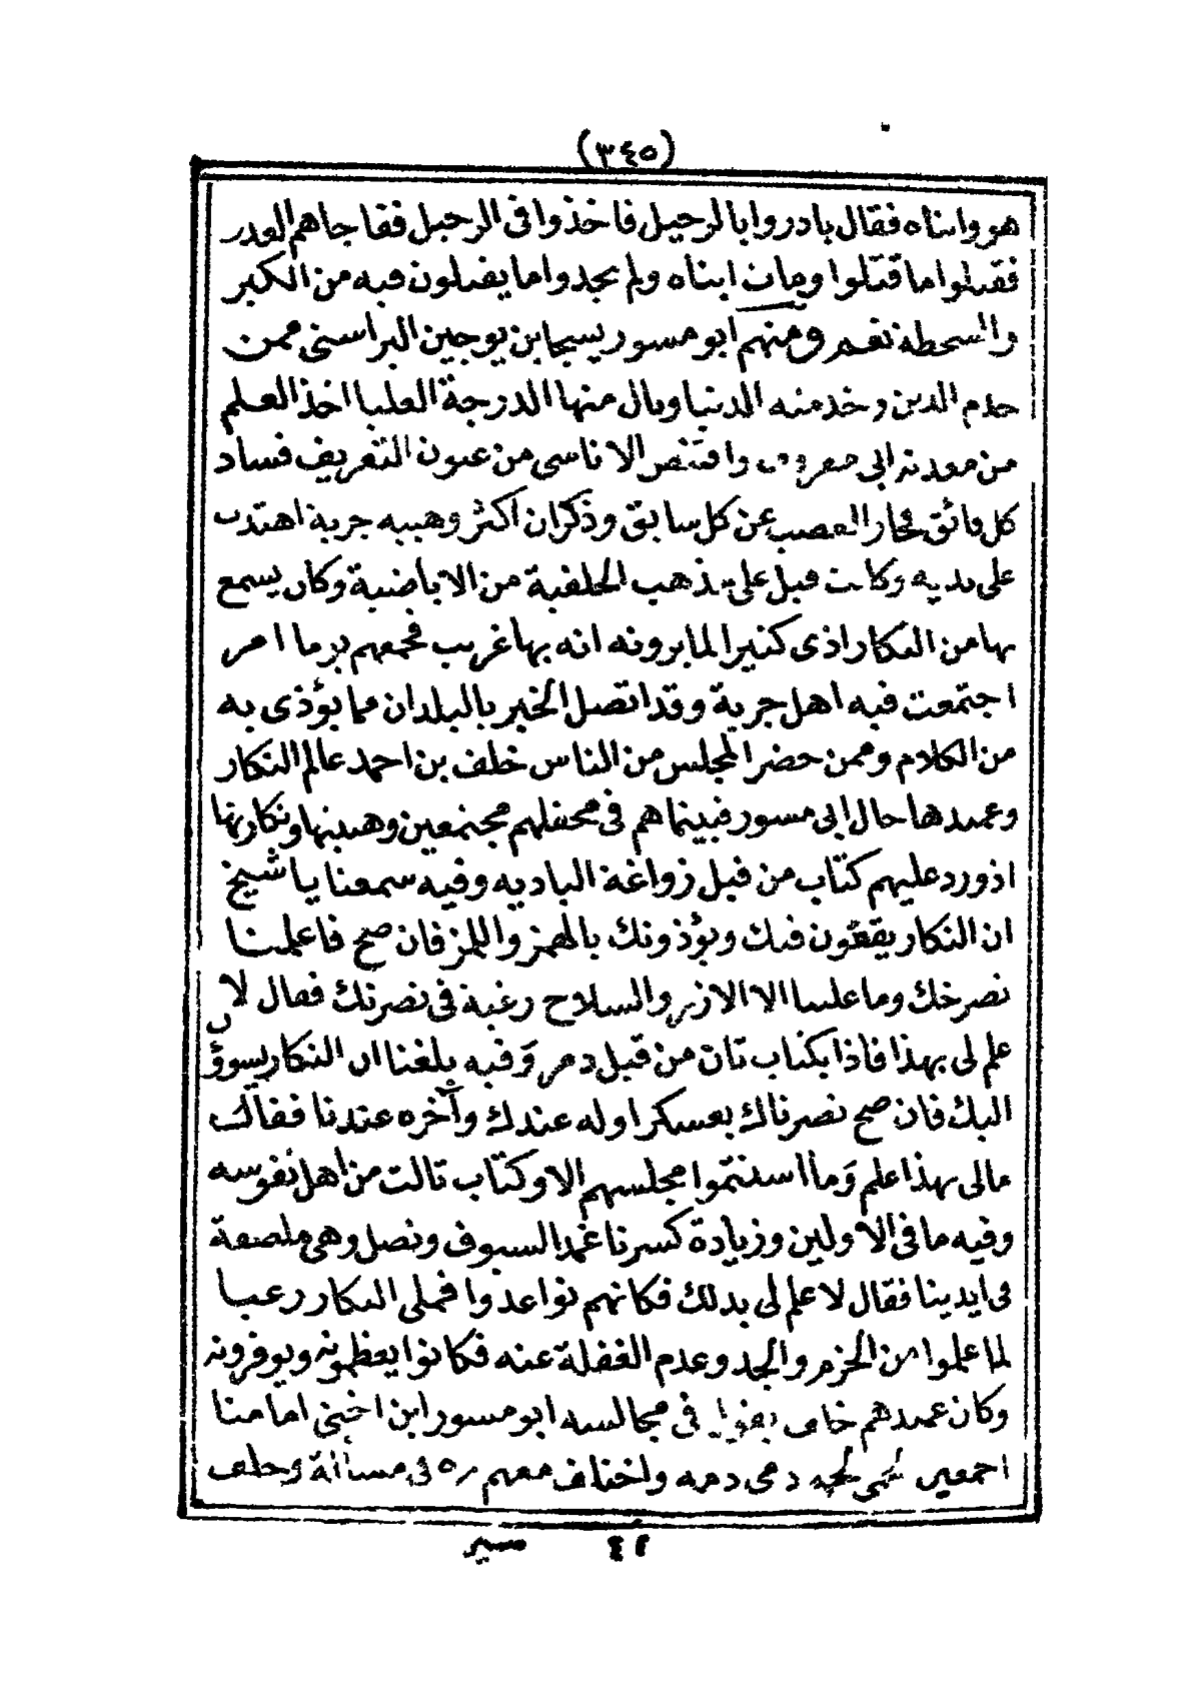 (٣٤٥)
هو وابناه فقال بادروا بالرحيل فاخذوا فى الرحيل ففاجاهم العدو
فقتلوا ما قتلوا ومات ابناه ولم يجدوا ما يغسلون فيه من الكبر
والسحطة نعم ومنهم ابو مسور يسجا بن يوجين اليراسنى ممن
خدم الدين وخدمته الدنيا ونال منها الدرجة العليا اخذ العلم
من معدنه ابى معروف واقتنص الاناسى من عيون التعريف فساد
كل فائق فحاز القصب عن كل سابق وذكر ان اكثر وهبيه جربة اهتدت
على يديه وكانت قبل على مذهب الخلفية من الاباضية وكان يسمع
بها من النكار اذى كثيرا لما يرونه انه بها غريب فجمعهم يوما امر
اجتمعت فيه اهل جربة وقد اتصل الخبر بالبلدان مما يؤذى به
من الكلام وممن حضر المجلس من الناس خلف بن احمد عالم النكار
وعميدها خال ابى مسور فبينما هم فى محفلهم مجتمعين وهبيتها ونكارتها
اذ ورد عليهم كتاب من قبل زواغة الباديه وفيه سمعنا يا شيخ
ان النكار يقعون فيك ويؤذونك بالهمز واللمز فان صح فاعلمنا
نصرخك وما علينا الا الازر والسلاح رغبة فى نصرتك فقال لا
علم لى بهذا فاذا بكتاب ثان من قبل دمر وفيه بلغنا ان النكار يسوؤن
اليك فان صح نصرناك بعسكر اوله عندك وآخره عندنا فقال
مالى بهذا علم وما استتموا مجلسهم الا وكتاب ثالث من اهل نفوسه
وفيه ما فى الاولين وزيادة كسرنا غمد السيوف ونصل وهى ملصقة
فى ايدينا فقال لا علم لى بذلك فكانهم تواعدوا فملى النكار رعبا
لما علموا من الحزم والجد وعدم الغفلة عنه فكانوا يعظمونه ويوقرونه
وكان عميدهم خلف يقول فى مجالسه ابو مسور ابن اختى امامنا
اجمعين لحمى لحمه دمى دمه واختلف معهم مرة فى مسألة وخلف
٤٤ سير